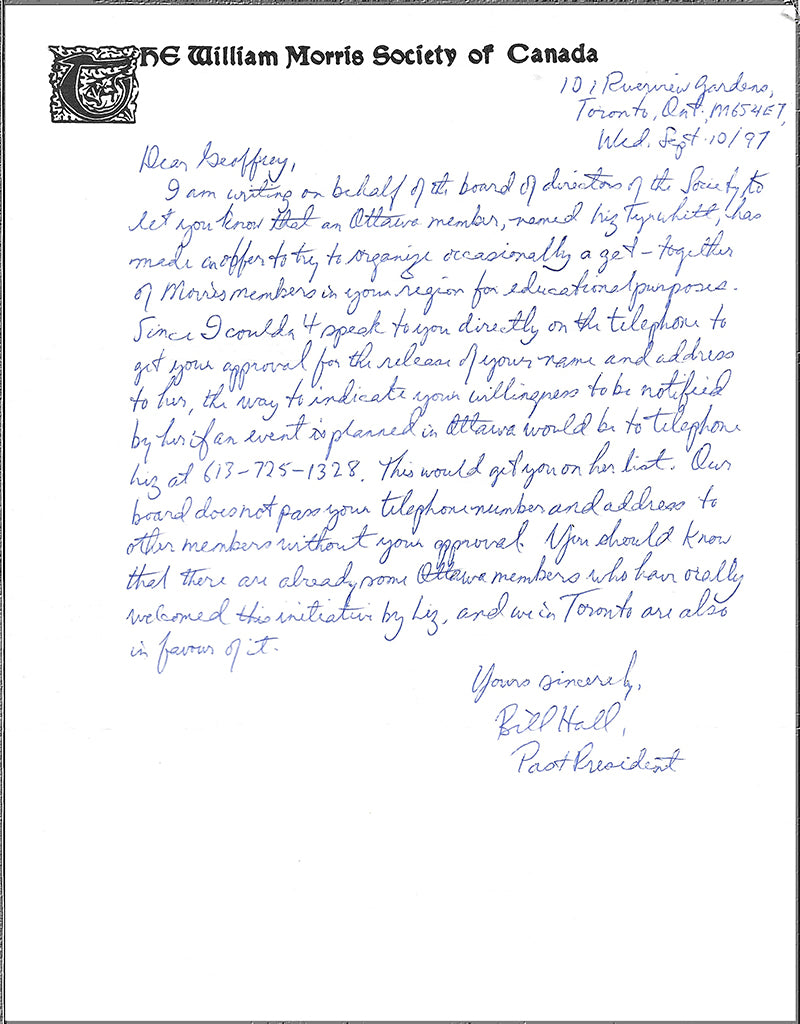 THE William Morris Society of Canada
101 Riverview Gardens,
Toronto, Ont. M6S4E7,
Wed. Sept. 10/97
Dear Geoffrey,
I am writing on behalf of the board of directors of the Society to
let you know that an Ottawa member, named Liz Tyrwhitt, has
made an offer to try to organize occasionally a get-together
of Morris members in your region for educational purposes.
Since I couldn't speak to you directly on the telephone to
get your approval for the release of your name and address
to her, the way to indicate your willingness to be notified
by her if an event is planned in Ottawa would be to telephone
Liz at 613-725-1328. This would get you on her list. Our
board does not pass your telephone number and address to
other members without your approval. You should know
that there are already some Ottawa members who have orally
welcomed this initiative by Liz, and we in Toronto are also
in favour of it.
Yours sincerely,
Bill Hall,
Past President